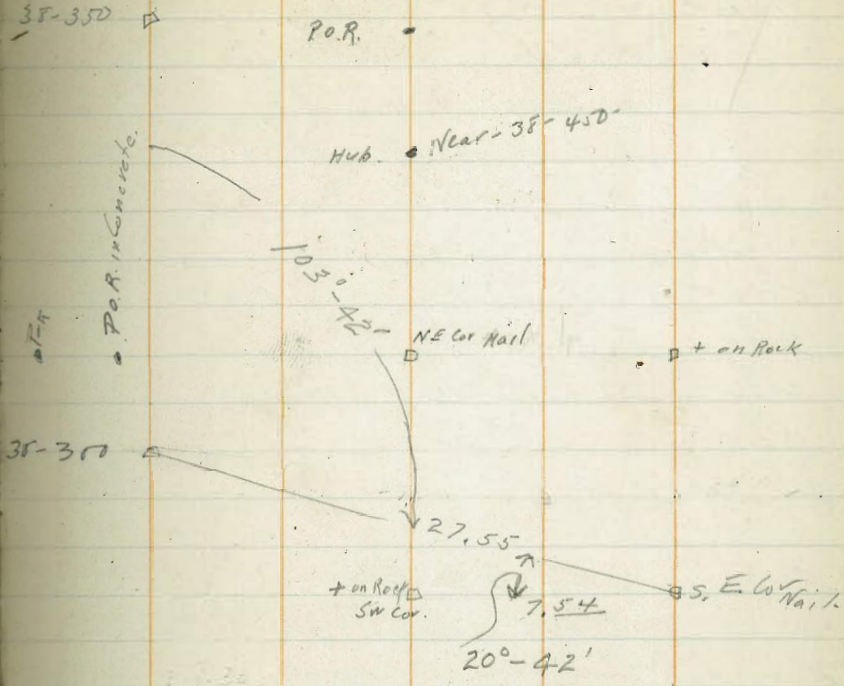 38-350
P.O.R.
Hub. Near - 38-450-
P.O.R. in Concrete.
103°-42-
NE Cor Nail
+ on Rock
27.55
+ on Rock
SW Cor.
7.54
S. E. Cor Nail.
20°-42'